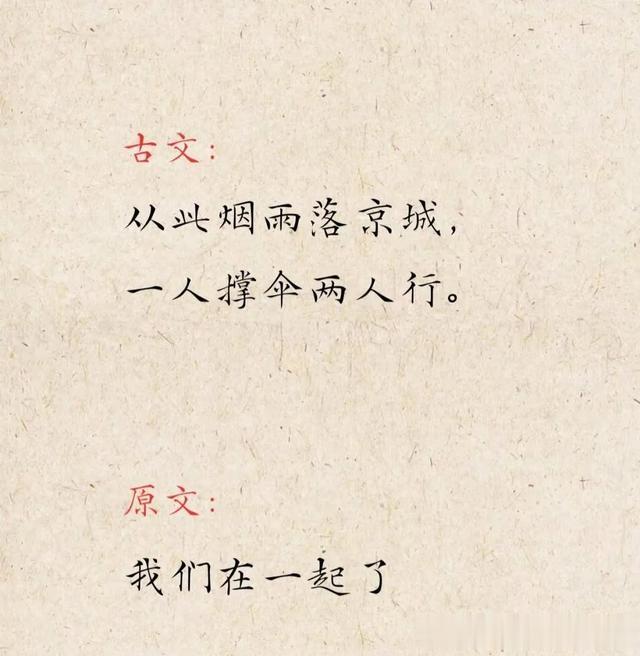 古文：
从此烟雨落京城，
一人撑伞两人行。
原文：
我们在一起了